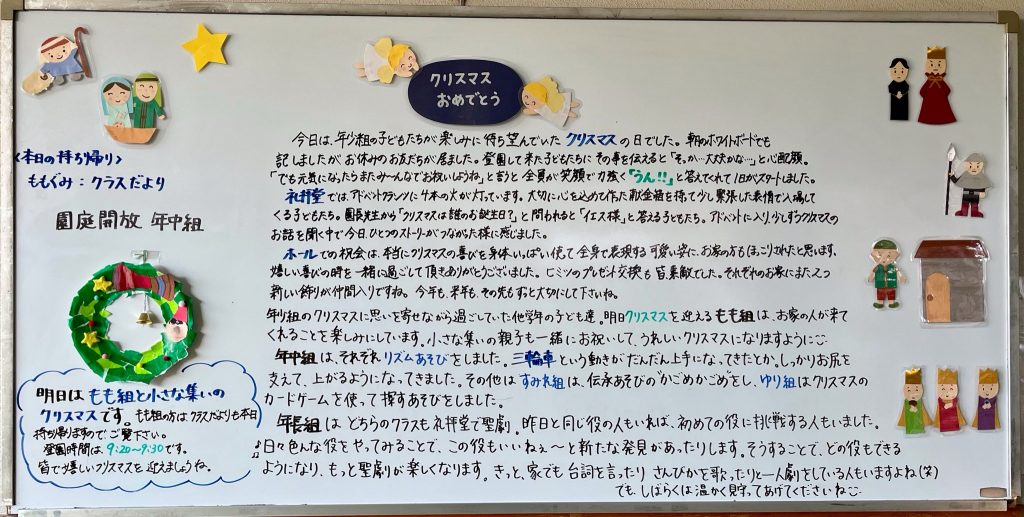 クリスマス
おめでとう
<本日の持ち帰り>
ももぐみ:クラスだより
園庭開放 年中組
明日はもも組と小さな集いの
クリスマスです。もも組の方はクラスだよりも本日
持ち帰りますので、ご覧下さい。
登園時間は、9:20~9:30です。
皆で嬉しいクリスマスを迎えましょうね。
今日は、年少組の子どもたちが楽しみに待ち望んでいたクリスマスの日でした。朝のホワイトボードでも
記しましたが、お休みのお友だちが居ました。登園して来た子どもたちにその事を伝えると「そっか…大丈夫かな…」と心配顔。
「でも元気になったらまたみ~んなでお祝いしようね」と言うと全員が笑顔で力強く「うん!!」と答えてくれて1日がスタートしました。
礼拝堂では、アドベントクランツに4本の火が灯っています。大切に心を込めて作った献金箱を持って少し緊張した表情で入場して
くる子どもたち。園長先生から「クリスマスは誰のお誕生日?」と問われると「イエス様」と答える子どもたち。アドベントに入り、少しずつクリスマスの
お話を聞く中で今日、ひとつのストーリーがつながった様に感じました。
ホールでの祝会は、本当にクリスマスの喜びを身体いっぱい使って全身で表現する可愛い姿に、お家の方もほっこりされたと思います。
嬉しい喜びの時を一緒に過ごして頂きありがとうございました。ヒミツのプレゼント交換も皆素敵でした。それぞれのお家にまた1つ
新しい飾りが仲間入りですね。今年も、来年も、その先もずっと大切にして下さいね。
年少組のクリスマスに思いを寄せながら過ごしていた他学年の子ども達。明日クリスマスを迎えるもも組は、お家の人が来て
くれることを楽しみにしています。小さな集いの親子も一緒にお祝いして、うれしいクリスマスになりますように
年中組は、それぞれリズムあそびをしました。三輪車という動きがだんだん上手になってきたとか。しっかりお尻を
支えて、上がるようになってきました。その他はすみれ組は、伝承あそびの"かごめかごめ"をし、ゆり組はクリスマスの
カードゲームを使って捜すあそびをしました。
年長組はどちらのクラスも礼拝堂で聖劇。昨日と同じ役の人もいれば、初めての役に挑戦する人もいました。
♪日々色んな役をやってみることで、この役もいいねぇ~と新たな発見があったりします。そうすることで、どの役もできる
ようになり、もっと聖劇が楽しくなります。きっと、家でも台詞を言ったりさんびかを歌ったりと一人劇をしている人もいますよね(笑)
でも、しばらくは温かく見守ってあげてくださいね